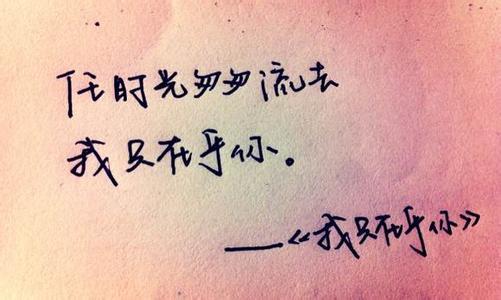 任时光匆匆流去
我只在乎你。
——《我只在乎你》